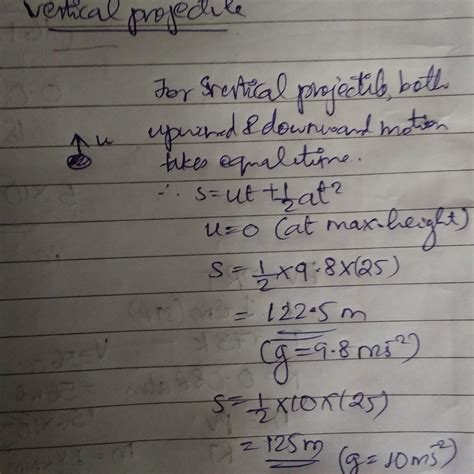 Vertical projectile
For vertical projectile, both
upward & downward motion
takes equal time.
u
∴ s = ut + 1/2 at²
u = 0 (at max. height)
s = 1/2 × 9.8 × (25)
= 122.5 m
(g = 9.8 ms⁻²)
s = 1/2 × 10 × (25)
= 125m (g = 10 ms⁻²)